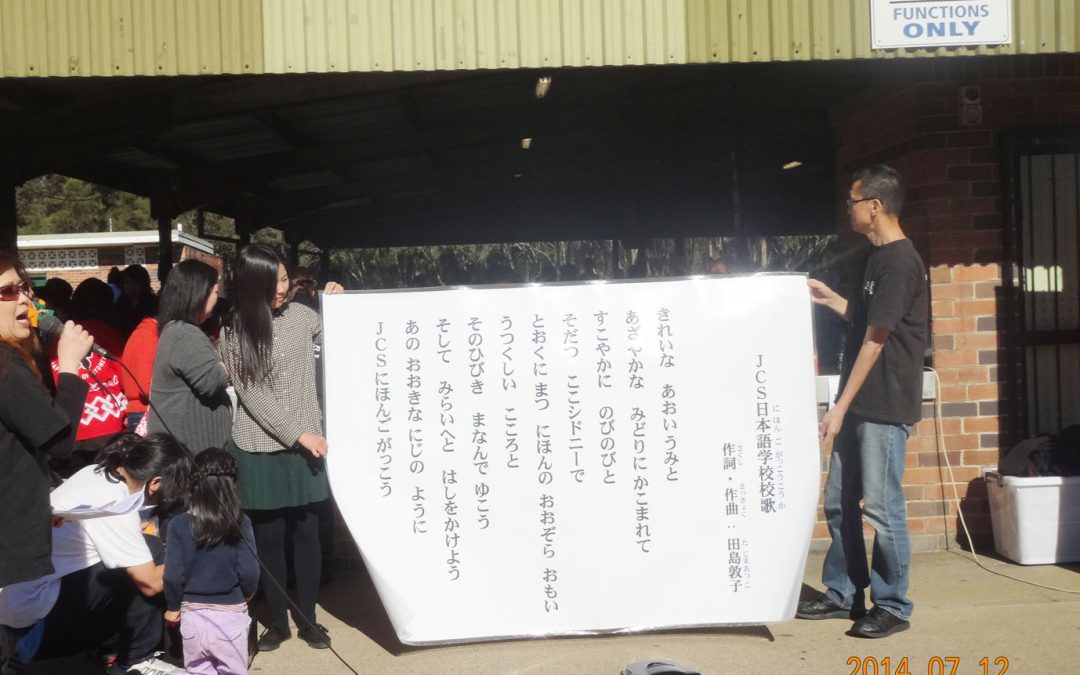 FUNCTIONS
ONLY
JCS日本語学校校歌
にほんごがっこうこうか
作詞・作曲：田島敦子
さくし さっきょく たじまあつこ
きれいな　あおいうみと
あざやかな　みどりにかこまれて
すこやかに　のびのびと
そだつ　ここシドニーで
とおくにまつ　にほんの　おおぞら　おもい
うつくしい　こころと
そのひびき　まなんで　ゆこう
そして　みらいへと　はしをかけよう
あの　おおきな　にじの　ように
JCSにほんごがっこう
2014 07 12